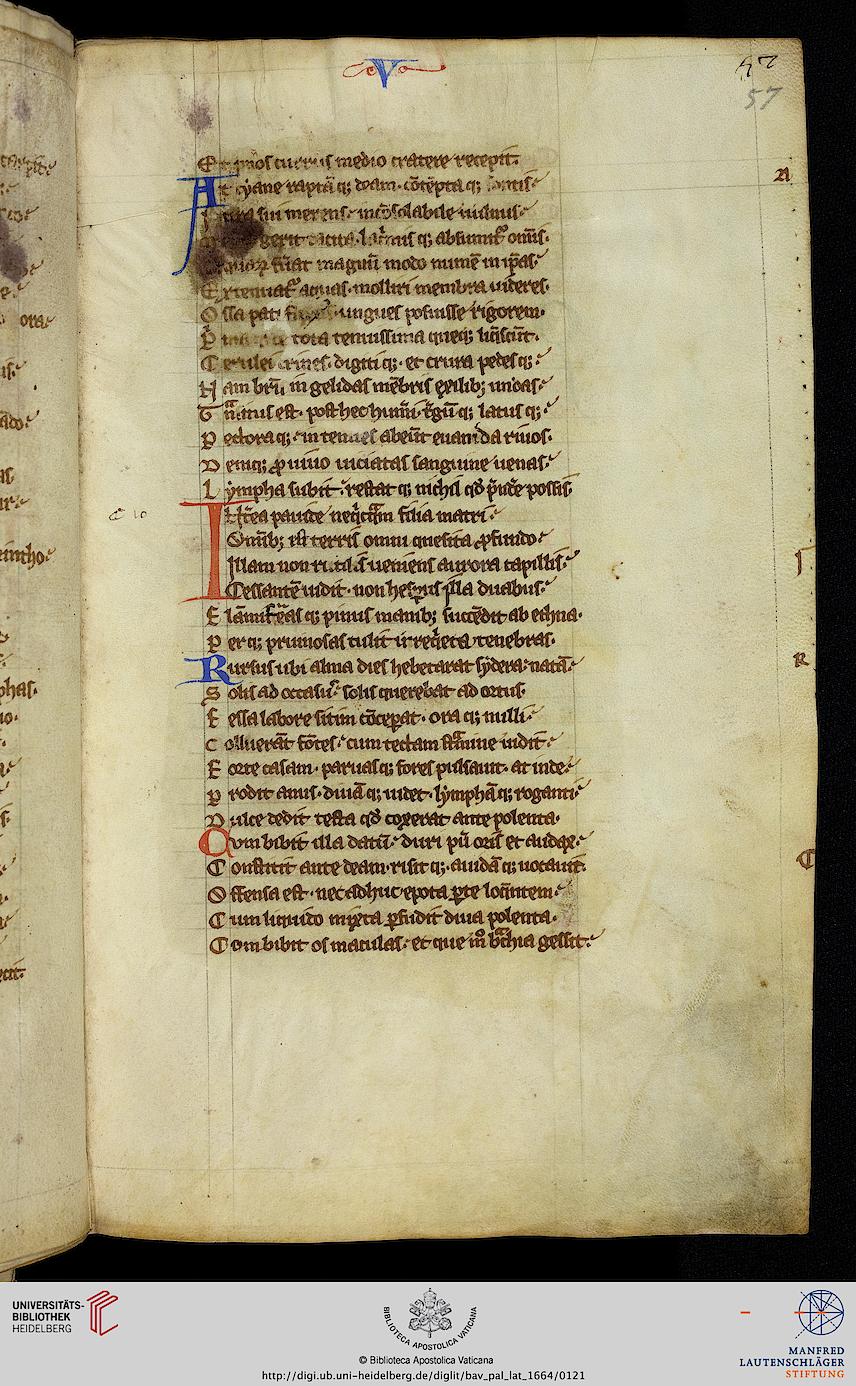 V
57
57
Et pnos currus medio cratere recepit.
At cyane raptā q; deam. cōtēpta q; fontis
Iura sui merens incōsolabile uulnus
gerit tacita. lacrimis q; absumit᷑ om̄is.
fūat magnū modo numē in ip̄as
Extenuat᷑ aquas. molliri membra uideres.
Ossa pati ungues posuisse rigorem.
tota tenuissima queq; liq̄scūt.
Cerulei crines. digiti q; et crura pedes q;
Nam breū in gelidas mēbris exilib; undas
Tn̄situs est. post hec hum̄i t̄gū q; latus q;
Pectora q; in tenues abeūt euanida riuos.
Deniq; ꝓ uiuo uiciatas sanguine uenas
Lympha subit restat q; nichil qd̄ p̄ndꝛe possis.
C 10
INt̄ea pauide neq̄cq̄m filia matri
Omīb; ē terris omni quesita ꝓfundo
Illam non rutilis ueniens aurora capillis
Cessantē uidit. non hesꝑus illa duabus
Flāmiferas q; pinus manib; succēdit ab ethna.
Per q; pruinosas tulit irreq̄eta tenebras.
Rursus ubi alma dies hebetarat sydera natā
Solis ad occasū solis querebat ad ortus.
Fessa labore sitim cōceꝑat. ora q; nulli
Colluerāt fōtes cum tectam st̄amine uidit
Forte casam. paruas q; fores pulsauit. at inde
Prodit anus. diuā q; uidet. lymphā q; roganti
Dulce dedit testa qd̄ coxerat ante polenta.
Dvm bibit illa datū duri pū oris et audax
Constitit ante deam. risit q; auidā q; uocauit.
Offensa est. nec adhuc epota ꝑte loq̄ntem
Cum liquido mixta ꝑfudit diua polenta.
Combibit os maculas et que m̊ b̄chia gessit
UNIVERSITÄTS-
BIBLIOTHEK
HEIDELBERG
BIBLIOTECA APOSTOLICA VATICANA
© Biblioteca Apostolica Vaticana
http://digi.ub.uni-heidelberg.de/diglit/bav_pal_lat_1664/0121
MANFRED
LAUTENSCHLÄGER
STIFTUNG